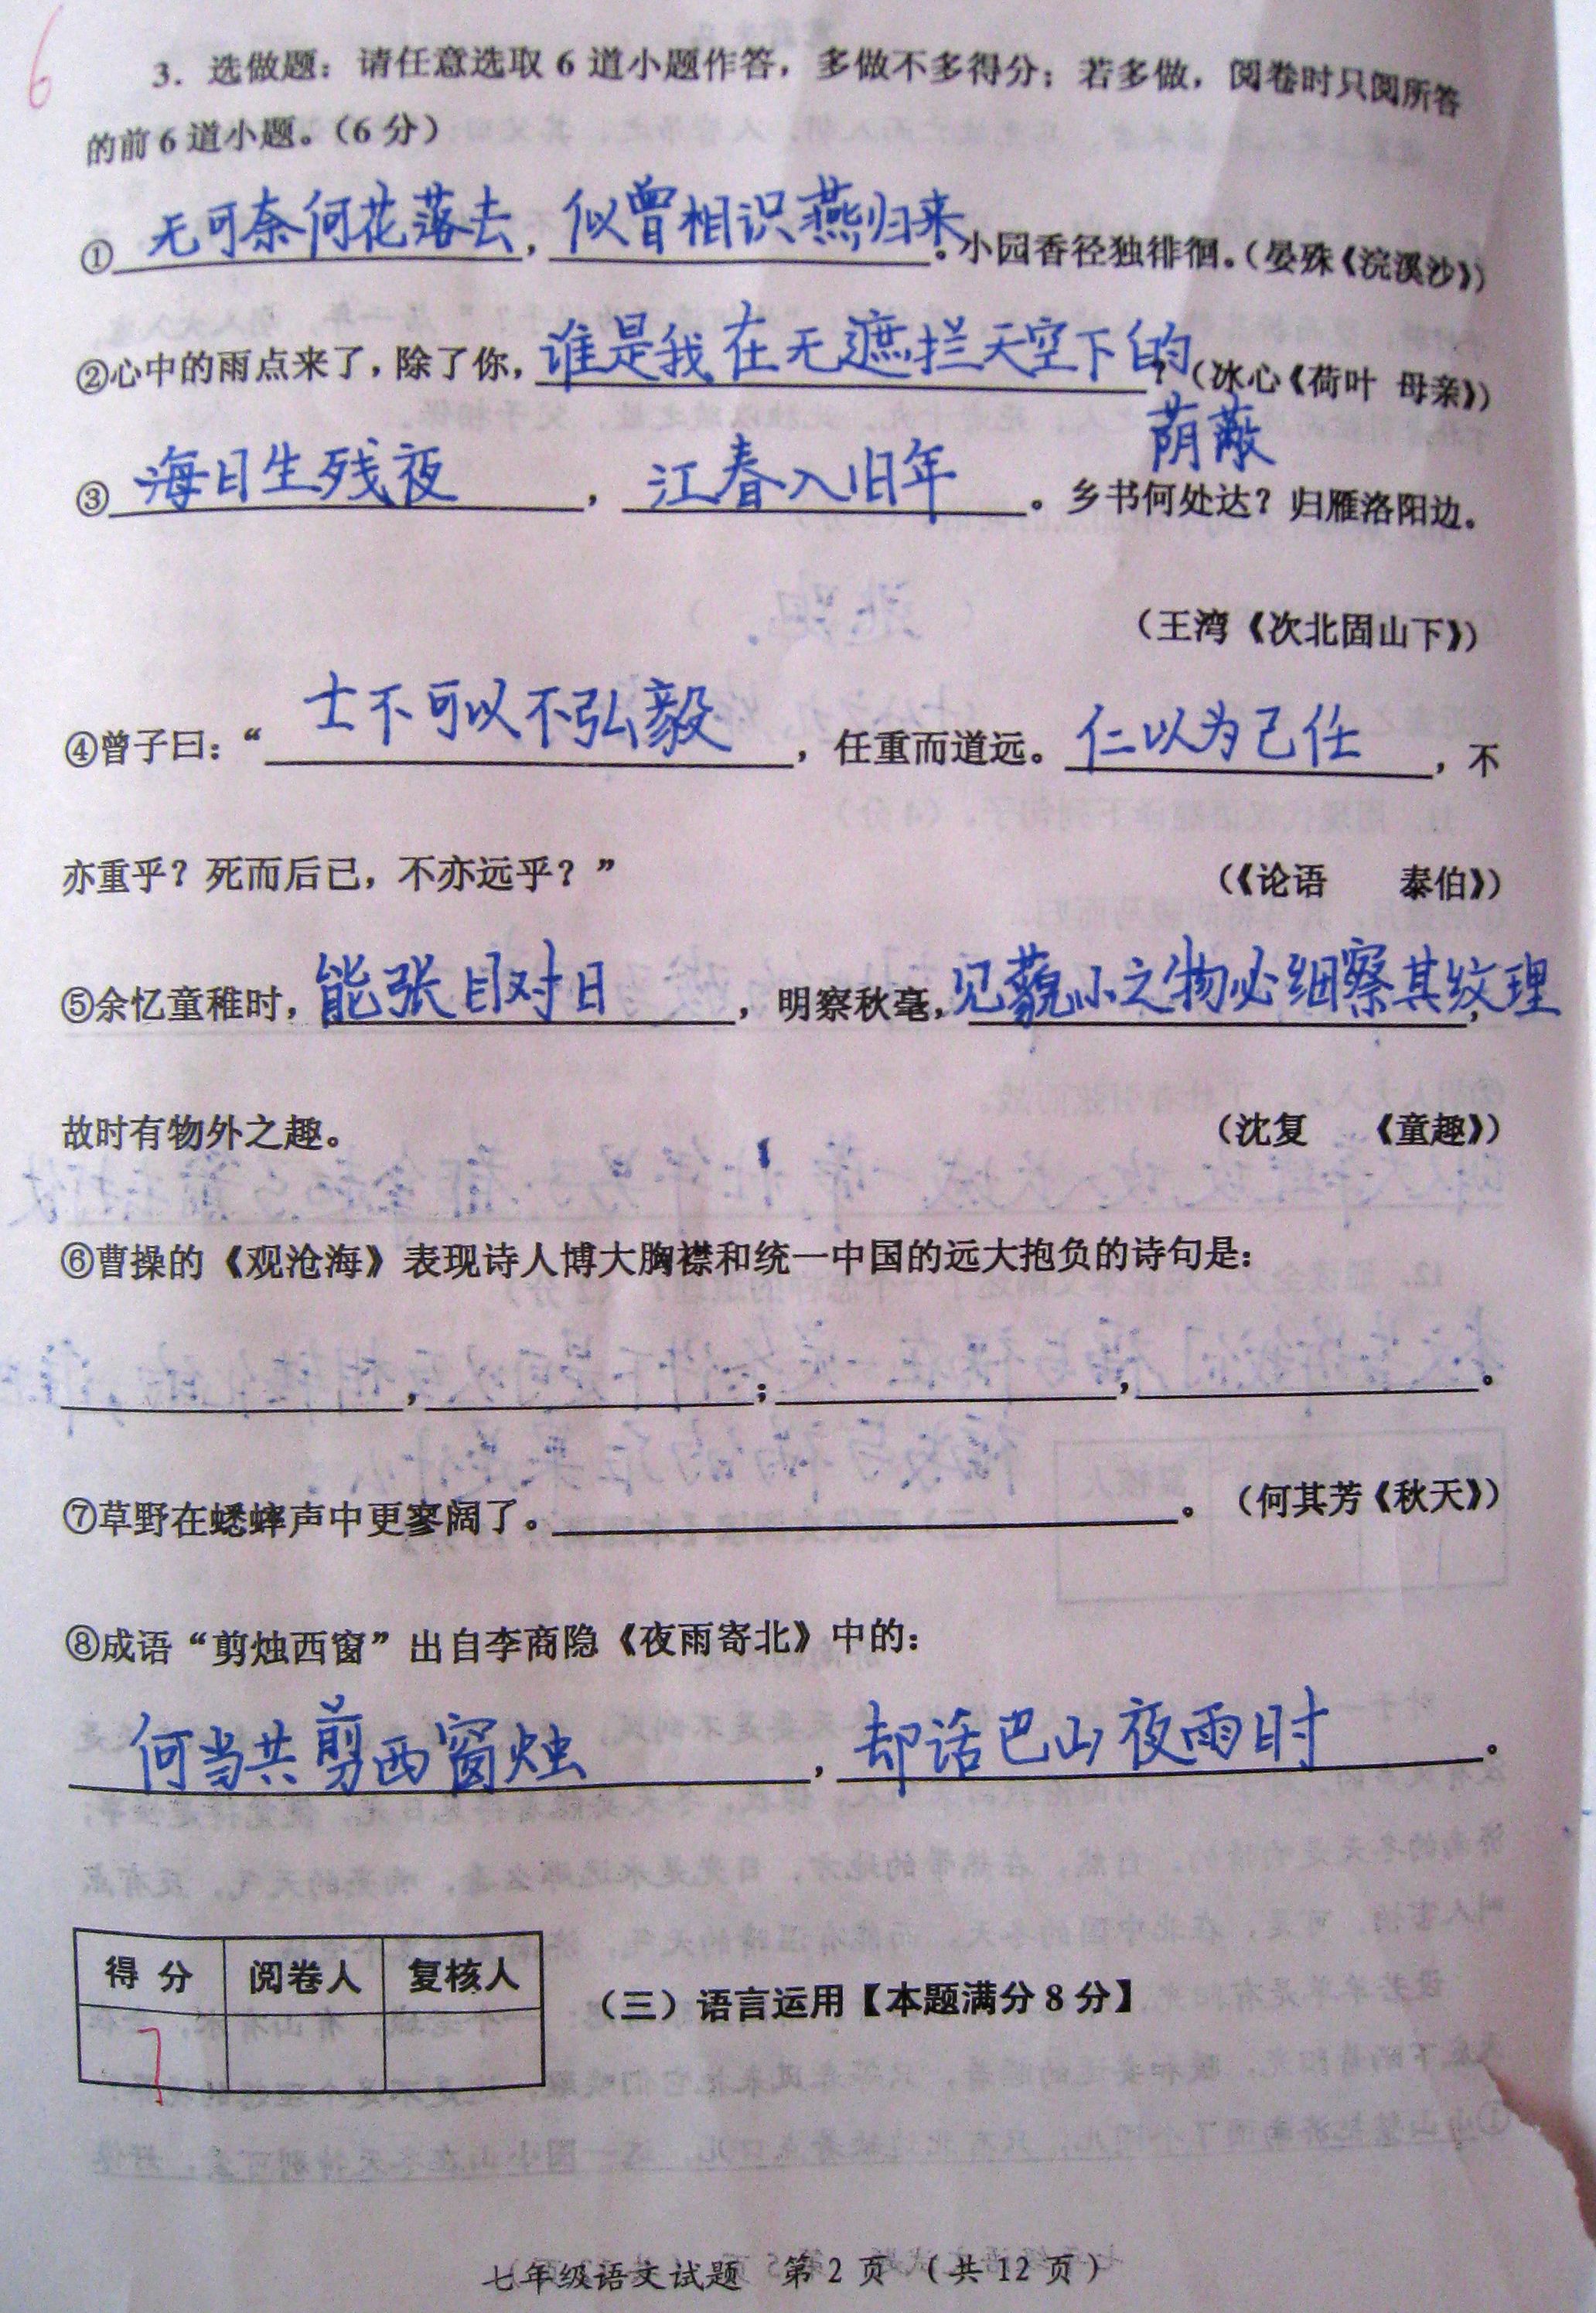 6
3. 选做题：请任意选取 6 道小题作答，多做不多得分；若多做，阅卷时只阅所答
的前 6 道小题。（6 分）
①无可奈何花落去，似曾相识燕归来。小园香径独徘徊。（晏殊《浣溪沙》）
②心中的雨点来了，除了你，谁是我在无遮拦天空下的？（冰心《荷叶 母亲》）
荫蔽
③海日生残夜，江春入旧年。乡书何处达？归雁洛阳边。
（王湾《次北固山下》）
④曾子曰：“士不可以不弘毅，任重而道远。仁以为己任，不
亦重乎？死而后已，不亦远乎？”（《论语 泰伯》）
⑤余忆童稚时，能张目对日，明察秋毫，见藐小之物必细察其纹理，
故时有物外之趣。（沈复 《童趣》）
⑥曹操的《观沧海》表现诗人博大胸襟和统一中国的远大抱负的诗句是：
，；，。
⑦草野在蟋蟀声中更寥阔了。。（何其芳《秋天》）
⑧成语“剪烛西窗”出自李商隐《夜雨寄北》中的：
何当共剪西窗烛，却话巴山夜雨时。
得 分 阅卷人 复核人
7
（三）语言运用【本题满分 8 分】
七年级语文试题 第 2 页 （共 12 页）